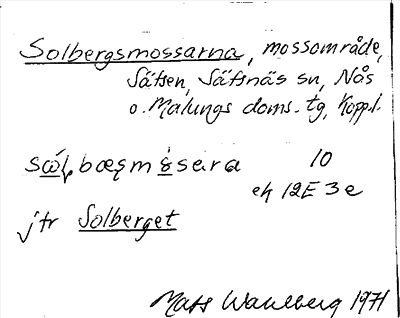 Solbergsmossarna, mossområde,
Sätsen, Sätsnäs sn, Nås
o. Malungs doms. tg, Kopp.l.
10
ek 12E 3e
jtr Solberget
Mats Wahlberg 1971